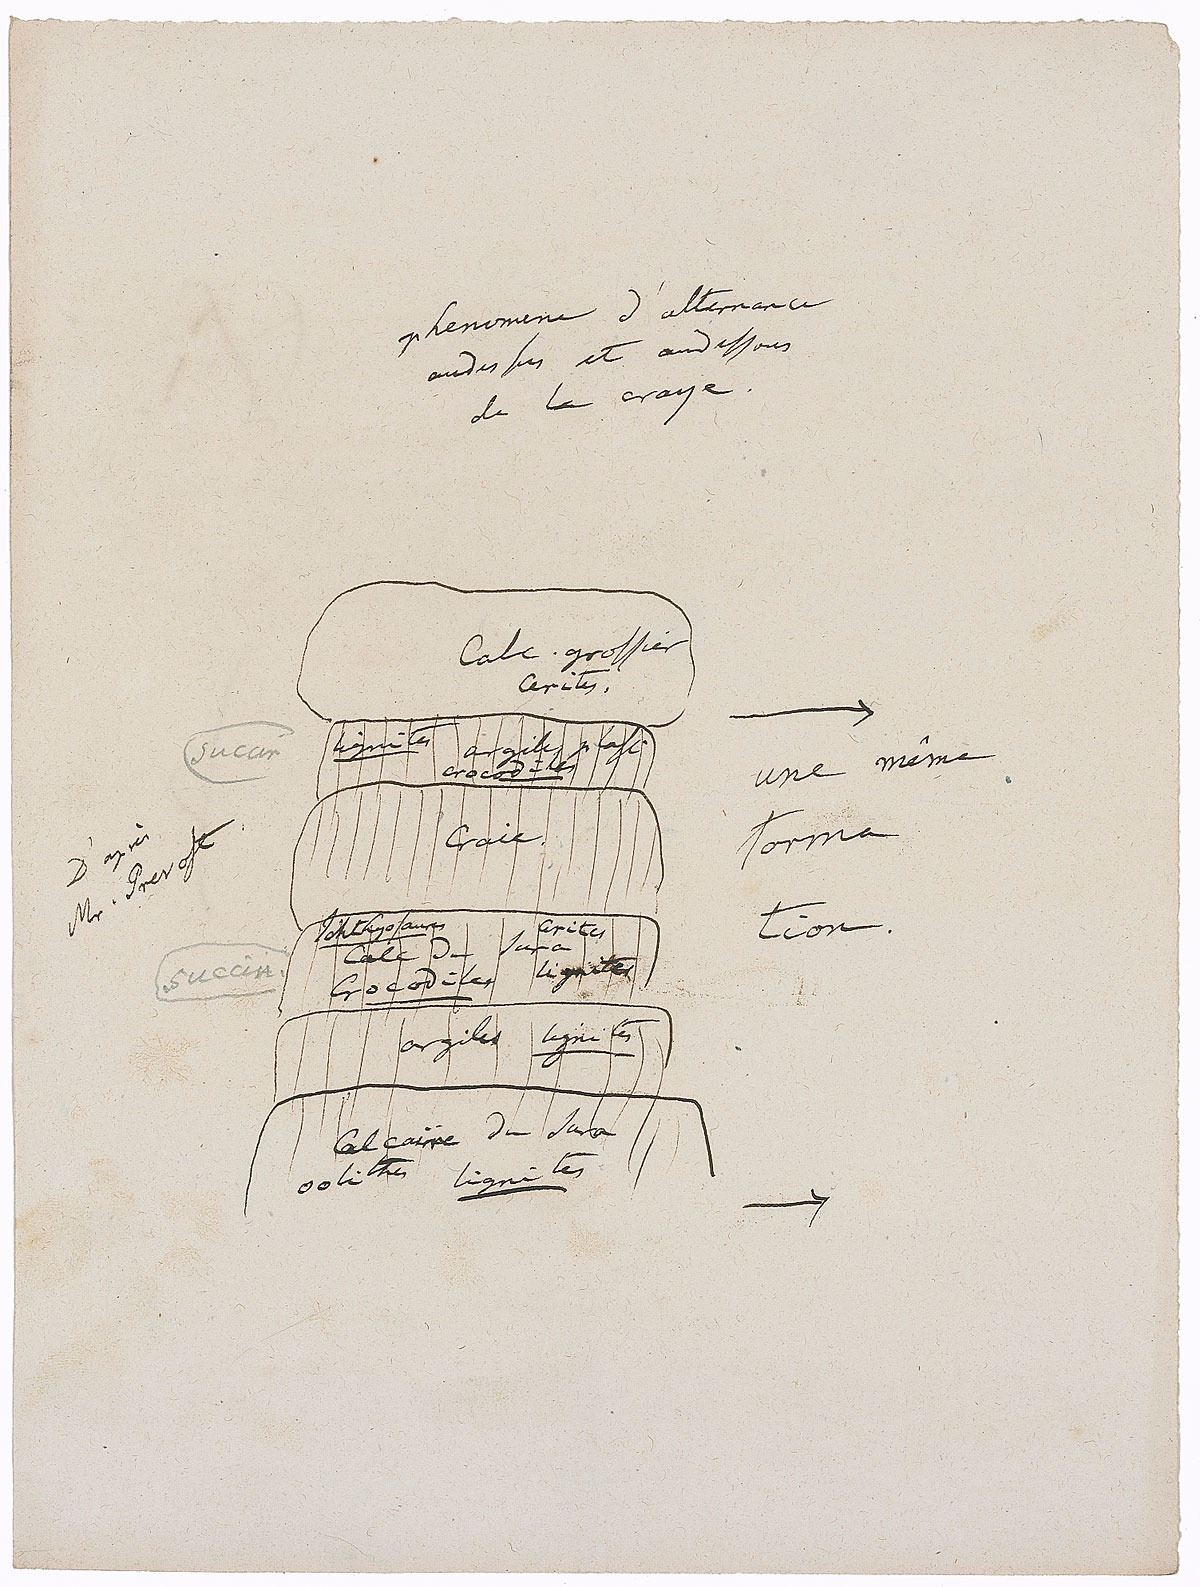 phenomene d'alternance
audessus et audessous
de la craye.
Calc. grossier
Cerites.
succin
lignites argiles plast
crocodiles
Craie.
une même
forma
tion.
D'après
Mr. Prevost
Ichthyosaures Cerites
Calc du Jura
Crocodiles lignites
succin.
argiles lignites
Calcaire du Jura
oolithes lignites